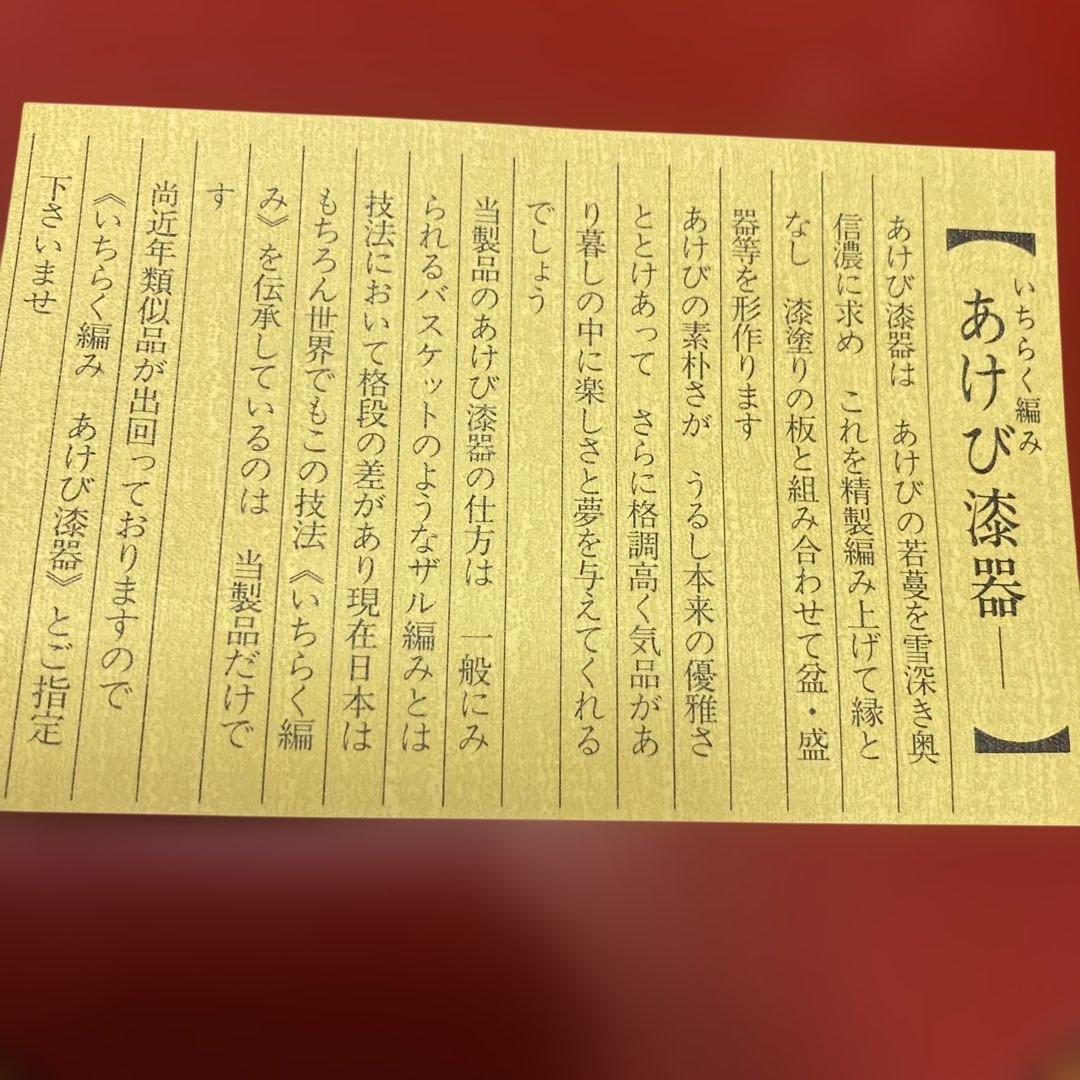 【いちらく編み
あけび漆器―】
あけび漆器は　あけびの若蔓を雪深き奥
信濃に求め　これを精製編み上げて縁と
なし　漆塗りの板と組み合わせて盆・盛
器等を形作ります
あけびの素朴さが　うるし本来の優雅さ
ととけあって　さらに格調高く気品があ
り暮しの中に楽しさと夢を与えてくれる
でしょう
当製品のあけび漆器の仕方は　一般にみ
られるバスケットのようなザル編みとは
技法において格段の差があり現在日本は
もちろん世界でもこの技法《いちらく編
み》を伝承しているのは　当製品だけで
す
尚近年類似品が出回っておりますので
《いちらく編み　あけび漆器》とご指定
下さいませ